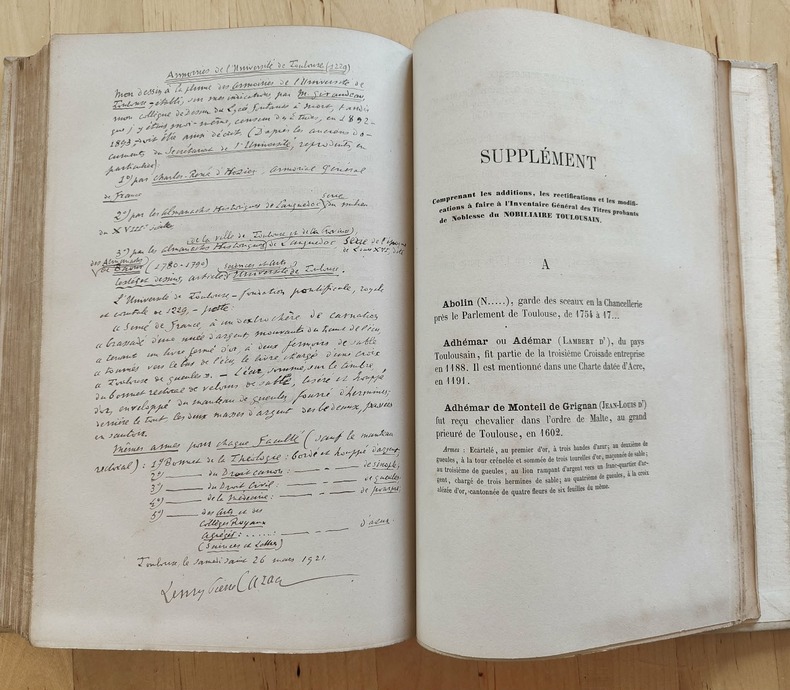 Armoiries de l'Université de Toulouse (1229)
Mon dessin à la plume des armoiries de l'Université de
Toulouse — établi, sur mes indications par M. Giraudeau,
mon collègue de dessin du Lycée Fontanes à Niort, tandis
que j'y étais moi-même, censeur des études, en 1892-
1893 — doit être ainsi décrit. (D'après les anciens do-
cuments du Secrétariat de l'Université, reproduits, en
particulier)
1°) par Charles-René d'Hozier, Armorial Général
de France
2°) par les Almanachs Historiques de Languedoc, série du milieu
du XVIIIe siècle
de la ville de Toulouse et de la Province
3°) par les Almanachs Historiques de Languedoc série de l'époque
de Louis XVI, dits
des Almanachs
de Baour (1780-1790) sciences et arts
article: Université de Toulouse.
L'Université de Toulouse — fondation pontificale, royale
et comtale de 1229 — porte:
« Semé de France, à un dextrochère de carnation
à brassade d'une nuée d'argent mouvante du flanc de l'écu,
tenant un livre fermé d'or, à deux fermoirs de sable
tournés vers le bas de l'écu, le livre chargé d'une croix
de Toulouse de gueules ». — L'écu, sommé, sur le timbre
du bonnet rectoral de velours de sable, liseré et houppé
d'or, enveloppé du manteau de gueules, fourré d'hermines;
derrière le tout les deux masses d'argent des bedeaux, passées
en sautoir.
Mêmes armes pour chaque Faculté (sauf le manteau
rectoral): 1°) Bonnet de la Théologie: bordé et houppé d'argent
2°) — du Droit Canon: — de sinople.
3°) — du Droit Civil: — de gueules
4°) — de la Médecine: — de pourpre
5°) — des Arts et des
Collèges Royaux
agrégés: ..... d'azur.
(Sciences et Lettres)
Toulouse, le samedi saint 26 mars 1921
SUPPLÉMENT
Comprenant les additions, les rectifications et les modifi-
cations à faire à l'Inventaire Général des Titres probants
de Noblesse du NOBILIAIRE TOULOUSAIN.
A
Abolin (N.....), garde des sceaux en la Chancellerie
près le Parlement de Toulouse, de 1754 à 17...
Adhémar ou Adémar (LAMBERT D'), du pays
Toulousain, fit partie de la troisième Croisade entreprise
en 1188. Il est mentionné dans une Charte datée d'Acre,
en 1191.
Adhémar de Monteil de Grignan (JEAN-LOUIS D')
fut reçu chevalier dans l'ordre de Malte, au grand
prieuré de Toulouse, en 1602.
Armes : Ecartelé, au premier d'or, à trois bandes d'azur; au deuxième de
gueules, à la tour crénelée et sommée de trois tourelles d'or, maçonnée de sable;
au troisième de gueules, au lion rampant d'argent vers un franc-quartier d'ar-
gent, chargé de trois hermines de sable; au quatrième de gueules, à la croix
alézée d'or, cantonnée de quatre fleurs de six feuilles du même.